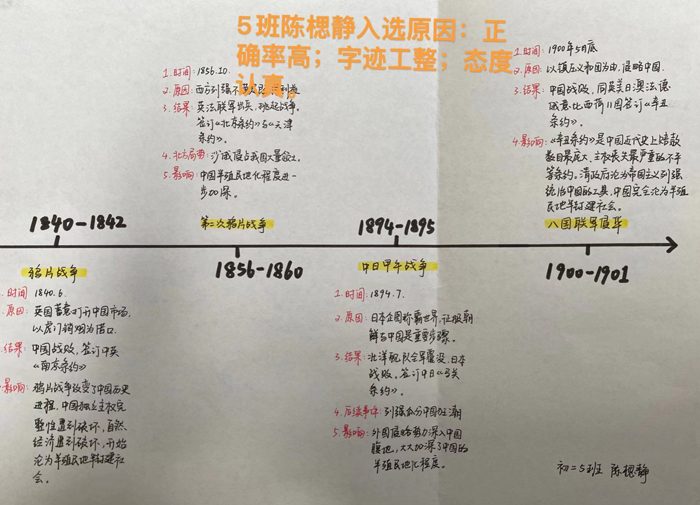 5班陈楒静入选原因：正
确率高；字迹工整；态度
认真。
1.时间：1856.10.
3.结果：英法联军出兵，挑起战争。
签订《北京条约》与《天津
条约》。
4.北方局势：沙俄侵占我国大量领土。
5.影响：中国半殖民地化程度进一
步加深。
1.时间：1900年5月底
2.原因：以镇压义和团为由，侵略中国
3.结果：中国战败，同英美日俄法德
意比西荷11国签订《辛丑
条约》。
4.影响：《辛丑条约》是中国近代史上赔款
数目最庞大、主权丧失最严重的不平
等条约。清政府沦为帝国主义列强
统治中国的工具，中国完全沦为半殖
民地半封建社会。
1840-1842
第二次鸦片战争
1894-1895
八国联军侵华
鸦片战争
1856-1860
中日甲午战争
1900-1901
1.时间：1840.6.
原因：英国蓄意打开中国市场，
以虎门销烟为借口.
结果：中国战败，签订中英
《南京条约》
影响：鸦片战争改变了中国历史
进程，中国独立主权完
整性遭到破坏，自然
经济遭到破坏，开始
沦为半殖民地半封建社
会。
1.时间：1894.7.
2.原因：日本企图称霸世界，征服朝
鲜与中国是重要步骤。
3.结果：北洋舰队全军覆没，日本
战败，签订中日《马关
条约》。
4.后续事件：列强瓜分中国狂潮
5.影响：外国侵略势力深入中国
腹地，大大加深了中国的
半殖民地化程度。
初二5班 陈楒静